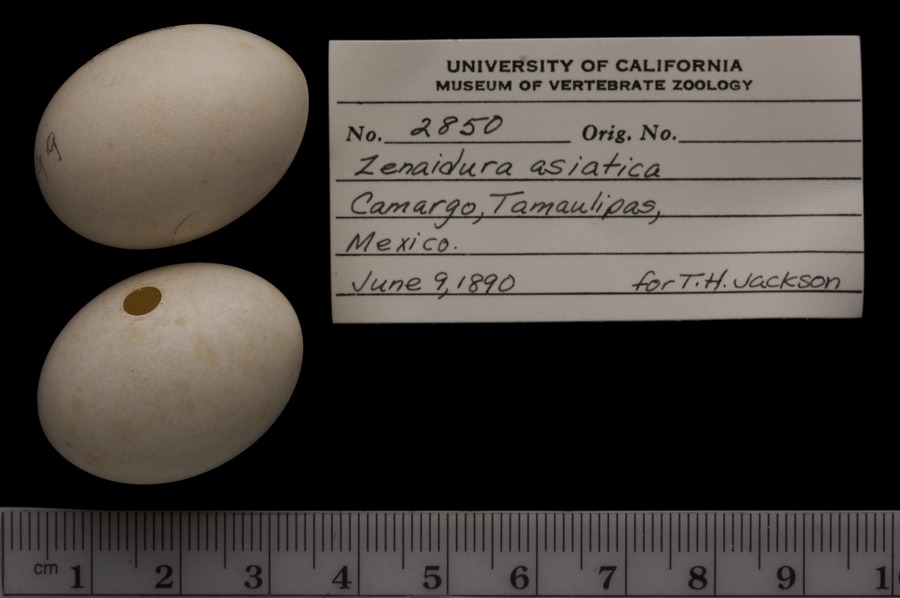 UNIVERSITY OF CALIFORNIA
MUSEUM OF VERTEBRATE ZOOLOGY
No. 2850 Orig. No.
Zenaidura asiatica
Camargo, Tamaulipas,
Mexico.
June 9, 1890 for T.H. Jackson
cm 1 2 3 4 5 6 7 8 9 1